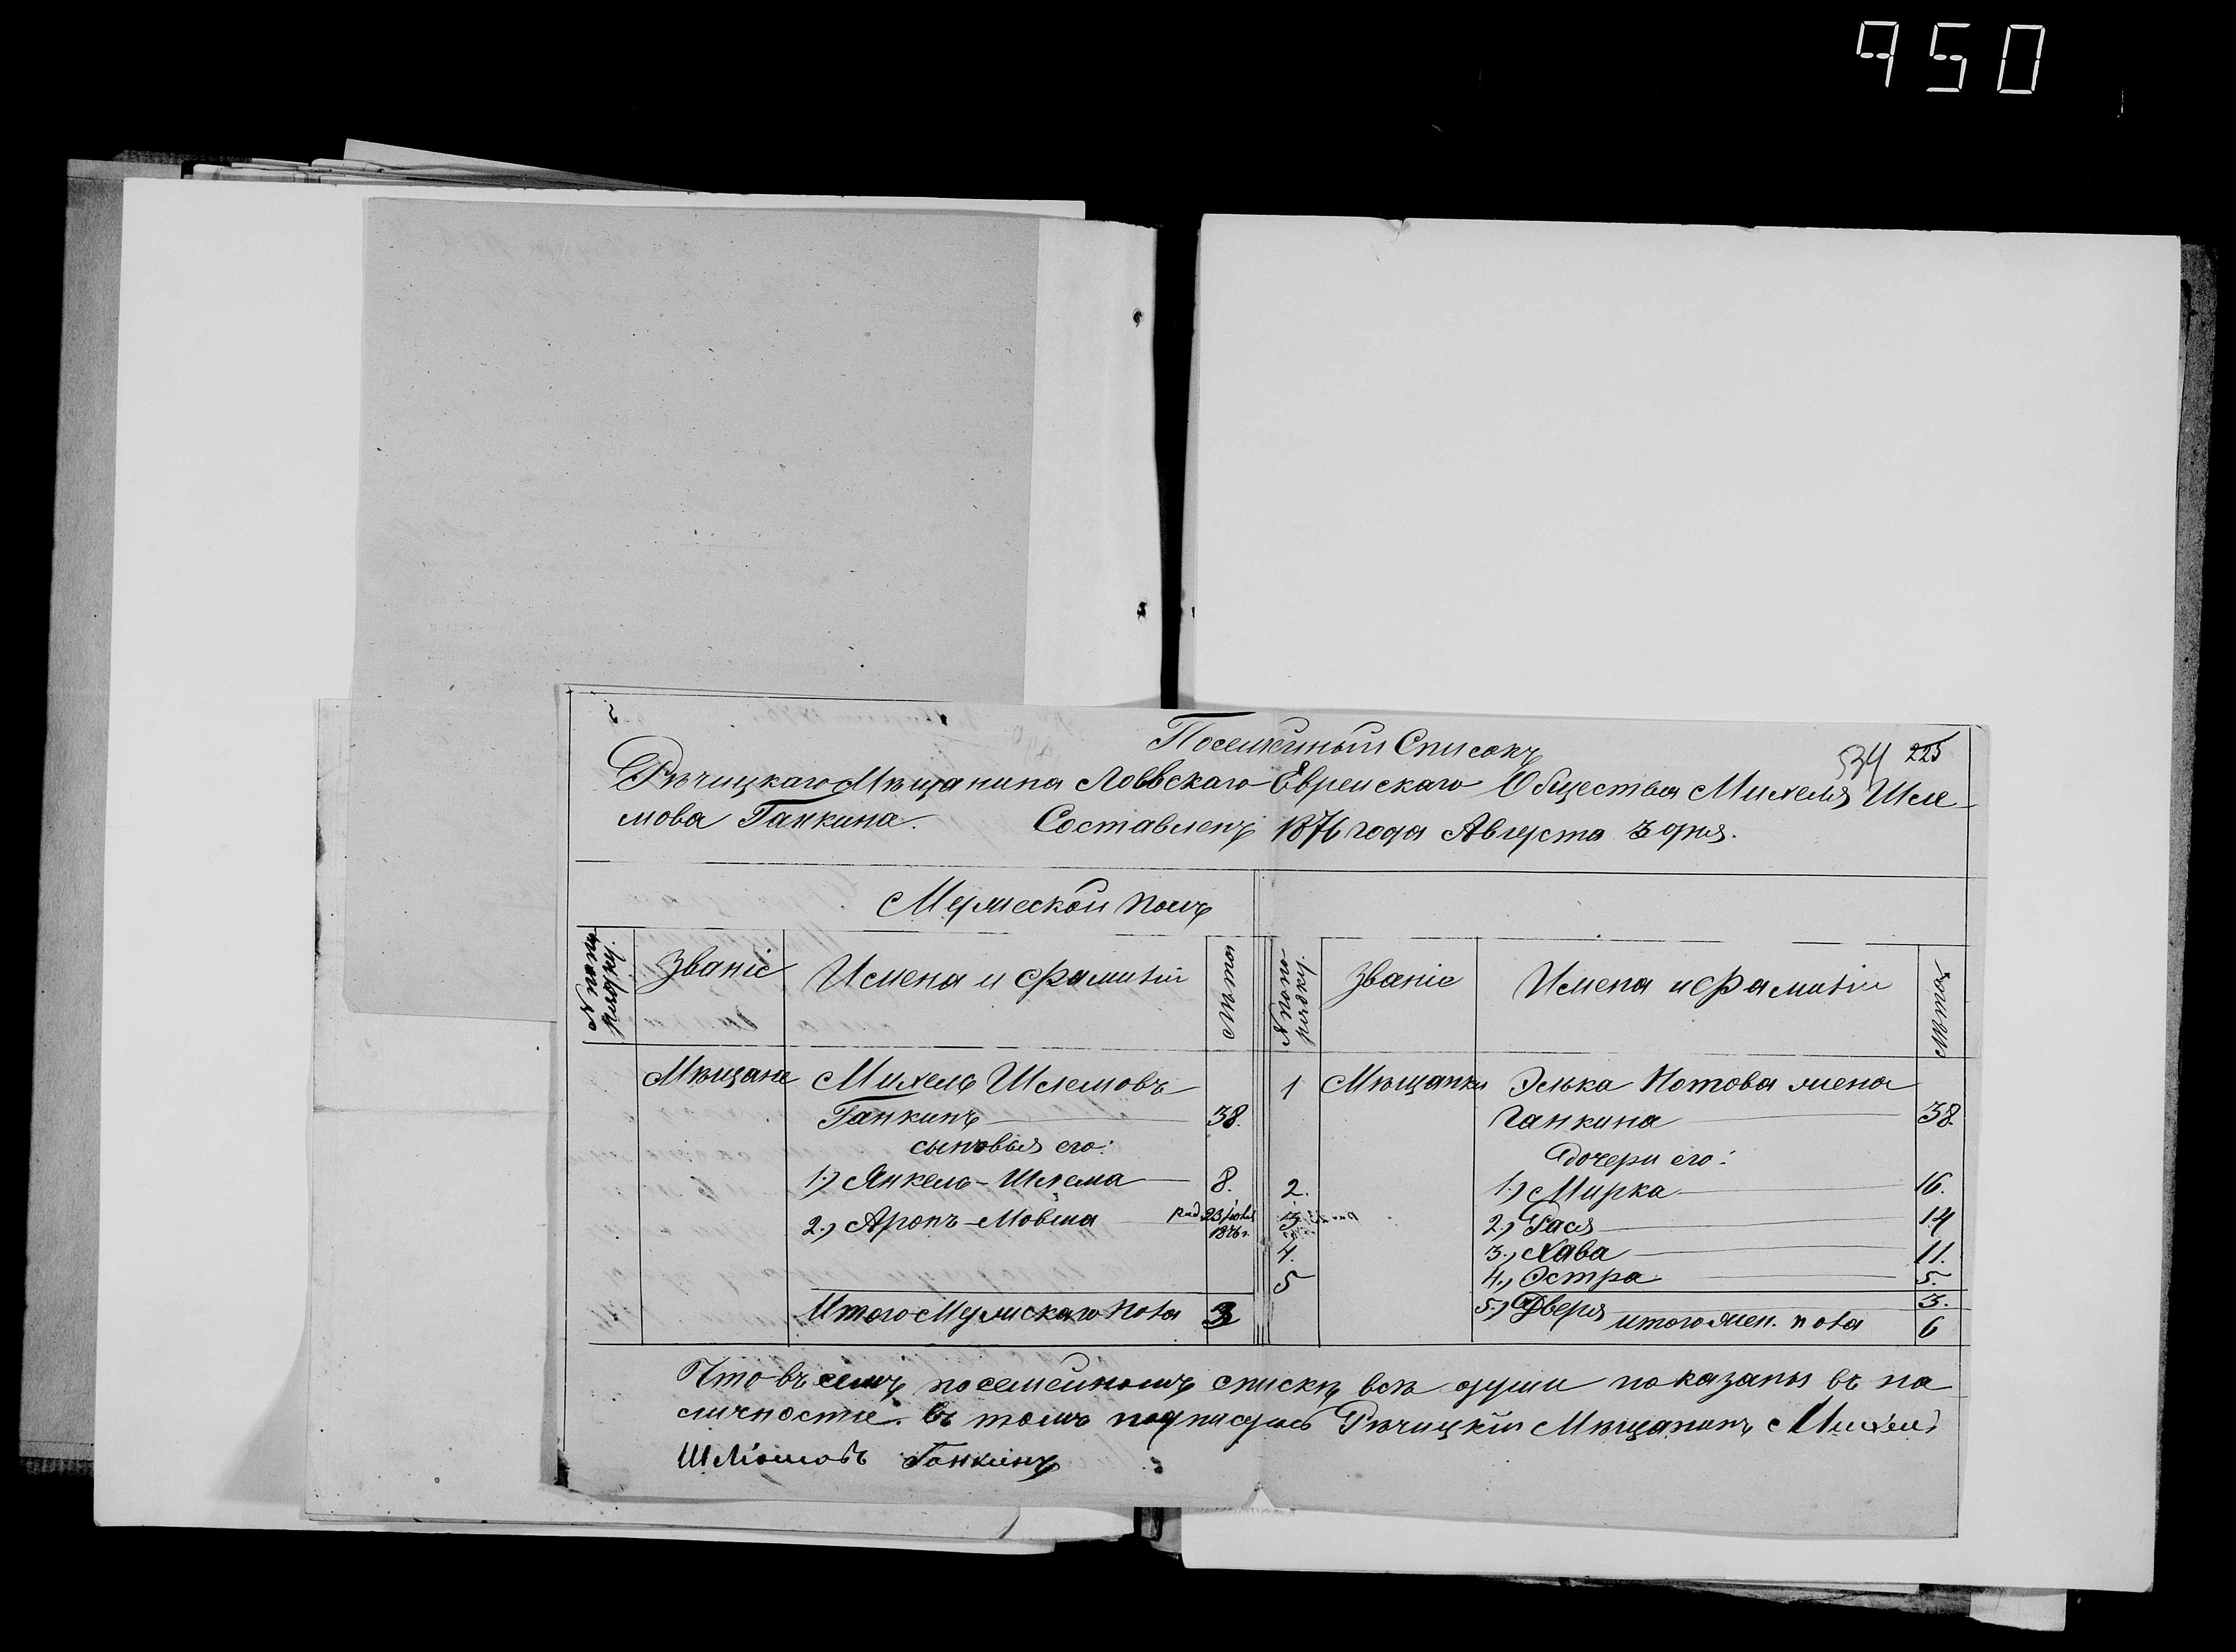 950
534 225
Посемейный Списокъ
Рѣчицкаго Мѣщанина Лоевскаго Еврейскаго Общества Михеля Шле-
мова Ганкина. Составленъ 1876 года Августа 3 дня.
Мужескій полъ
№ по по-
рядку.
Званіе
Имена и фамиліи
Лѣта
№ по по-
рядку.
Званіе
Имена и фамиліи
Лѣта
Мѣщане Михель Шлемовъ
Ганкинъ 38.
сыновья его:
1.) Янкель-Шлема 8.
2.) Аронъ-Мовша род. 23 іюля
1876 г.
Итого Мужскаго пола 3
1 Мѣщанки Элька Нотова жена
Ганкина 38.
дочери его:
2. 1.) Мирка 16.
3 2.) Гася 14
4. 3.) Хава 11.
5 4.) Эстра 5.
5.) Двера 3.
итого жен. пола 6
Что въ семъ посемейномъ списку всѣ души показаны въ на
личносте. въ томъ подписуюсь Рѣчицкій Мѣщанинъ Михель
Шлёмовъ Ганкинъ